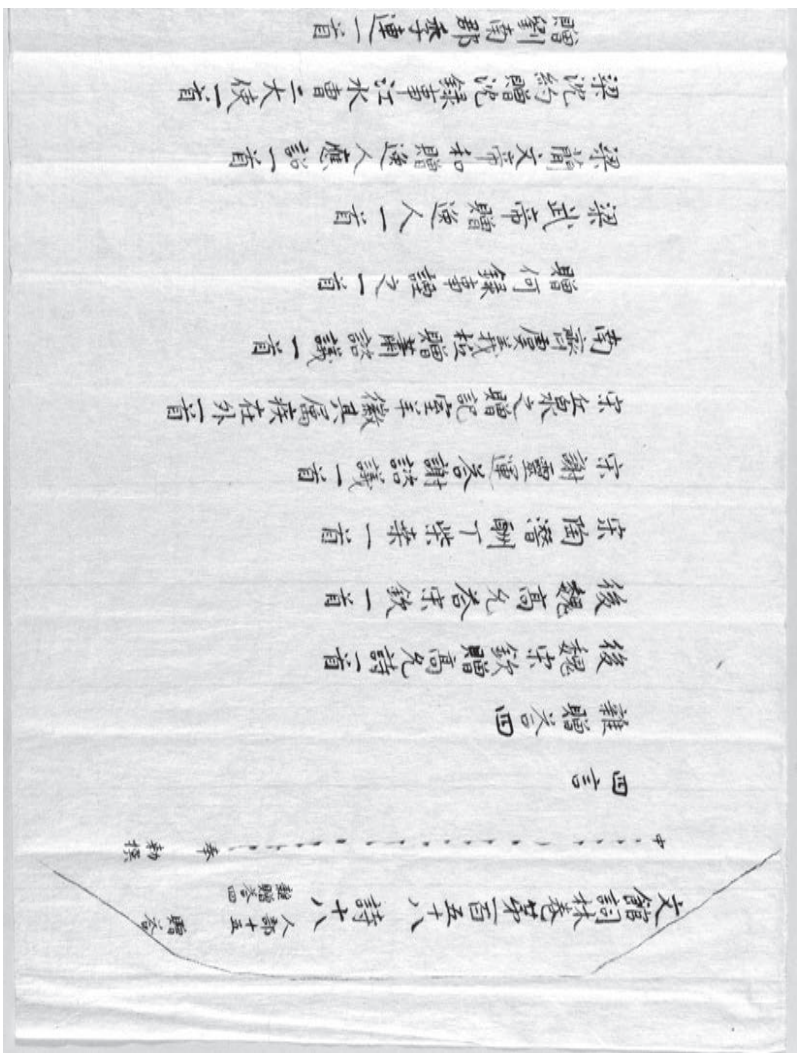 文館詞林卷第一百五十八 詩十八 人部十五 贈答 雜贈答四
中 奉 勅撰
四言
雜贈答四
後魏宗欽贈高允詩一首
後魏高允答宗欽一首
宋陶潛酬丁柴桑一首
宋謝靈運答謝諮議一首
宋丘泉之贈記室羊徽其屬疾在外一首
南齊虞羲敬贈蕭諮議一首
贈何錄事諲之一首
梁武帝贈逸人一首
梁簡文帝和贈逸人應詔一首
梁沈約贈沈錄事江水曹二大使一首
贈劉南郡季連一首